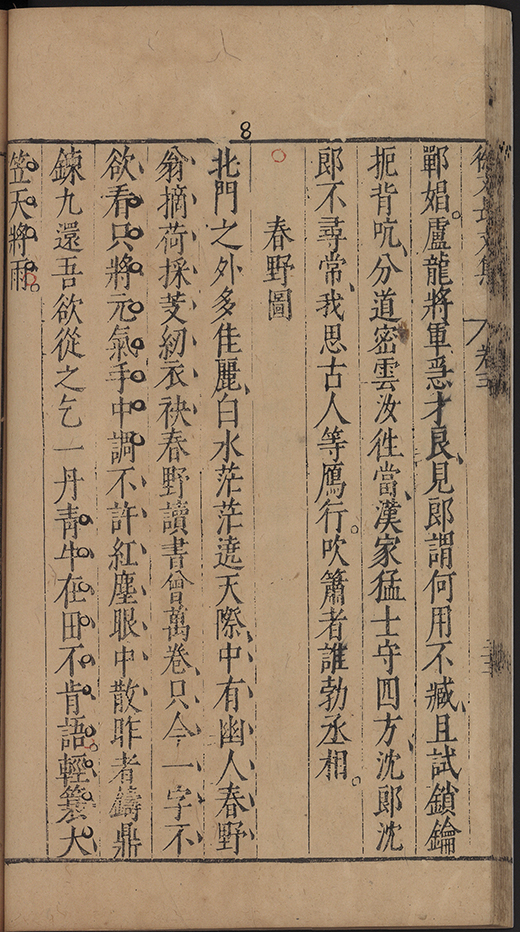 8
徐文長文集 卷
鄲娼。盧龍將軍急才良、見郎謂何用不臧、且試鎖鑰
扼背吭、分道密雲汝徃當、漢家猛士守四方、沈郎沈
郎不尋常、我思古人等鴈行。吹簫者誰勃丞相。
春野圖
北門之外多佳麗、白水茫茫遶天際、中有幽人春野
翁摘荷採芰紉衣袂春野讀書曾萬卷只今一字不
欲看只將元氣手中調不許紅塵眼中散昨者鑄鼎
鍊九還吾欲從之乞一丹青牛在田不肯語。輕簑大
笠天將雨。